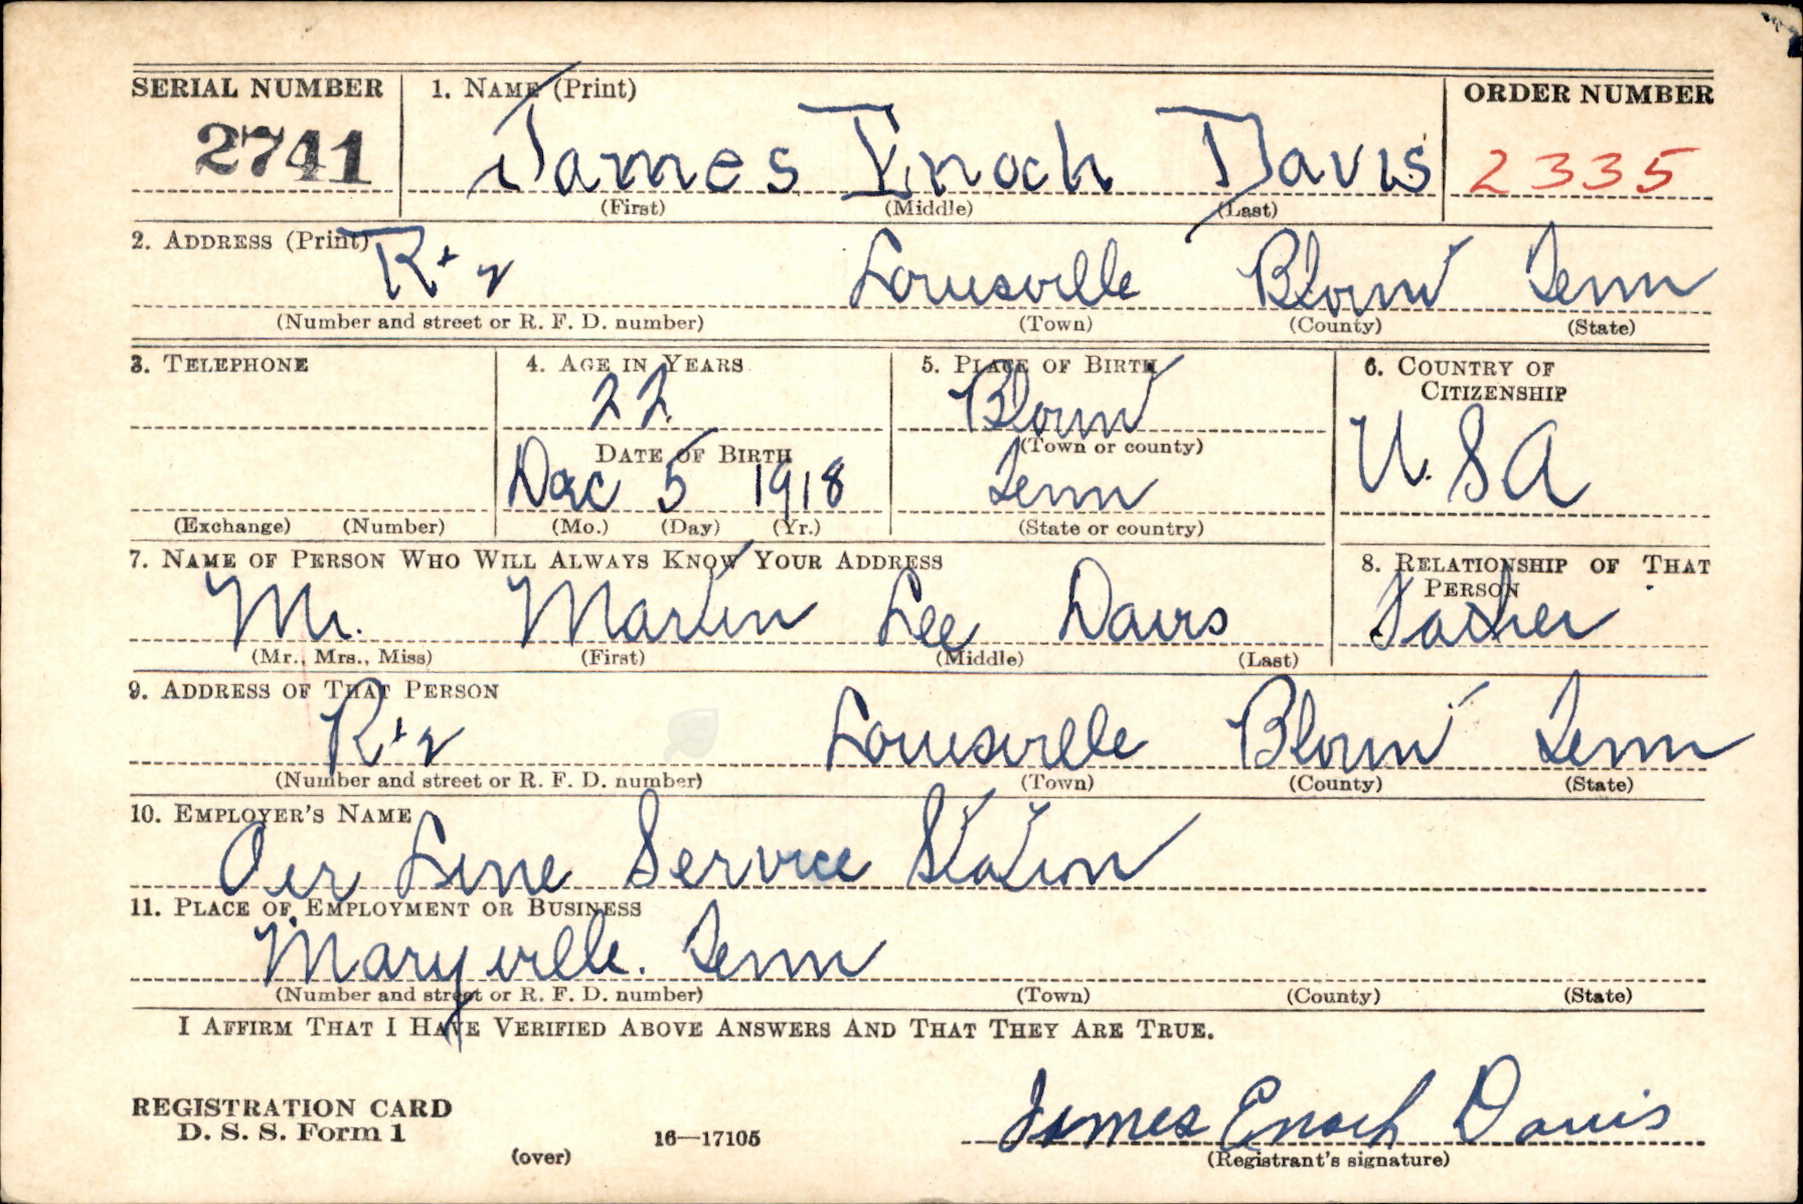 SERIAL NUMBER 1. NAME (Print) ORDER NUMBER
2741 James Enoch Davis 2335
(First) (Middle) (Last)
2. ADDRESS (Print)
Rt 2 Louisville Blount Tenn
(Number and street or R. F. D. number) (Town) (County) (State)
3. TELEPHONE 4. AGE IN YEARS 5. PLACE OF BIRTH 6. COUNTRY OF CITIZENSHIP
22 Blount
DATE OF BIRTH (Town or county) U.S.A
Dec 5 1918 Tenn
(Exchange) (Number) (Mo.) (Day) (Yr.) (State or country)
7. NAME OF PERSON WHO WILL ALWAYS KNOW YOUR ADDRESS 8. RELATIONSHIP OF THAT PERSON
Mr. Martin Lee Davis Father
(Mr., Mrs., Miss) (First) (Middle) (Last)
9. ADDRESS OF THAT PERSON
Rt 2 Louisville Blount Tenn
(Number and street or R. F. D. number) (Town) (County) (State)
10. EMPLOYER'S NAME
Air Line Service Station
11. PLACE OF EMPLOYMENT OR BUSINESS
Maryville. Tenn
(Number and street or R. F. D. number) (Town) (County) (State)
I AFFIRM THAT I HAVE VERIFIED ABOVE ANSWERS AND THAT THEY ARE TRUE.
REGISTRATION CARD
D. S. S. Form 1 James Enoch Davis
(over) 16—17105 (Registrant's signature)